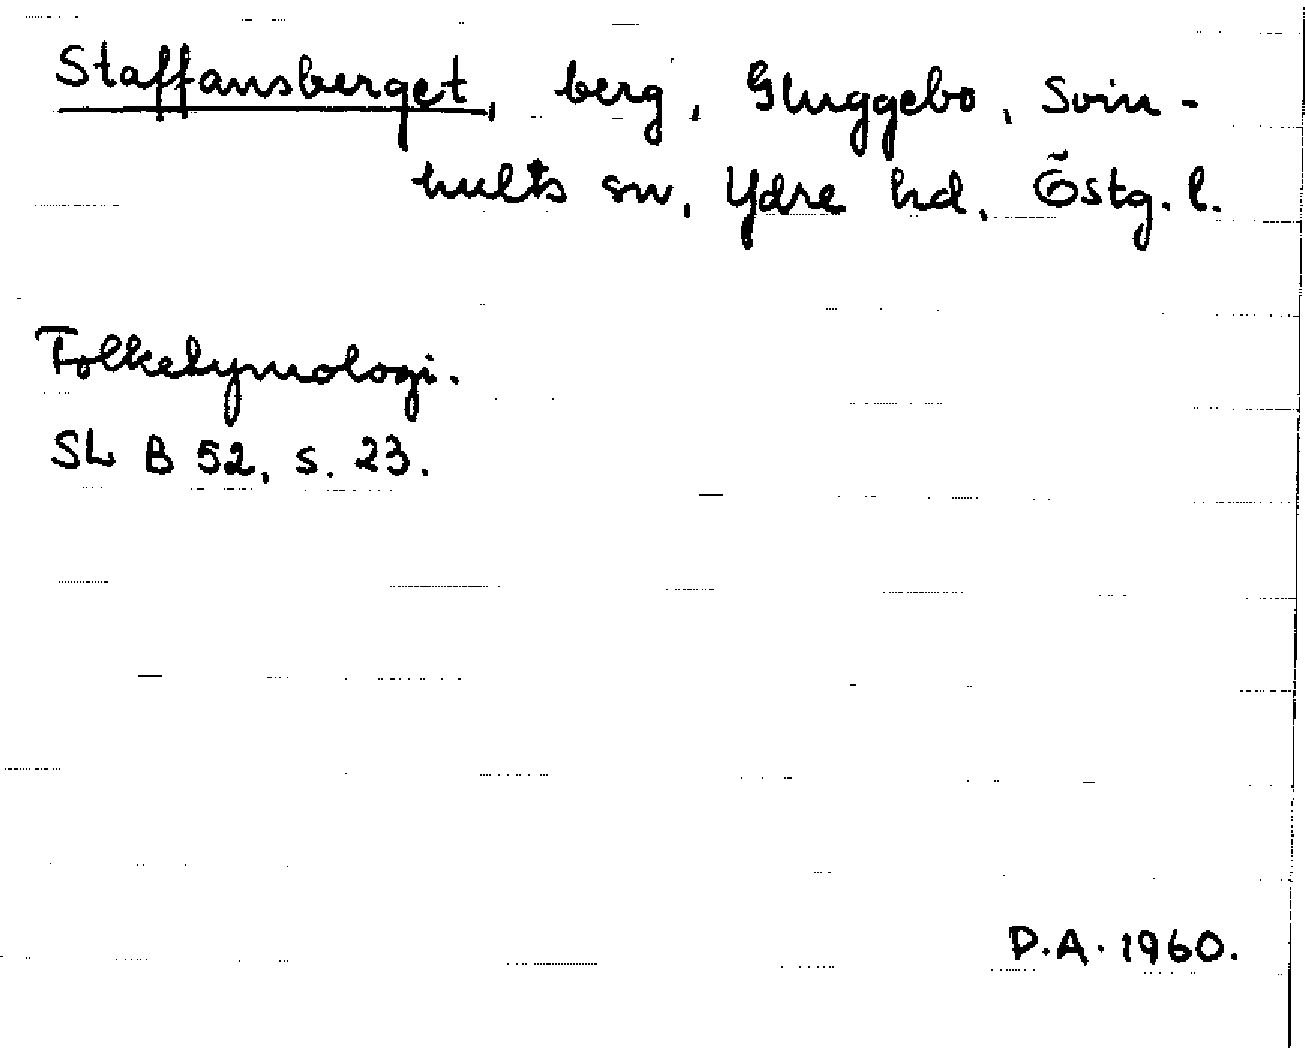 Staffansberget, berg, Gluggebo, Svin-
hults sn, Ydre hd, Östg. l.
Folketymologi.
SL B 52, s. 23.
D.A. 1960.